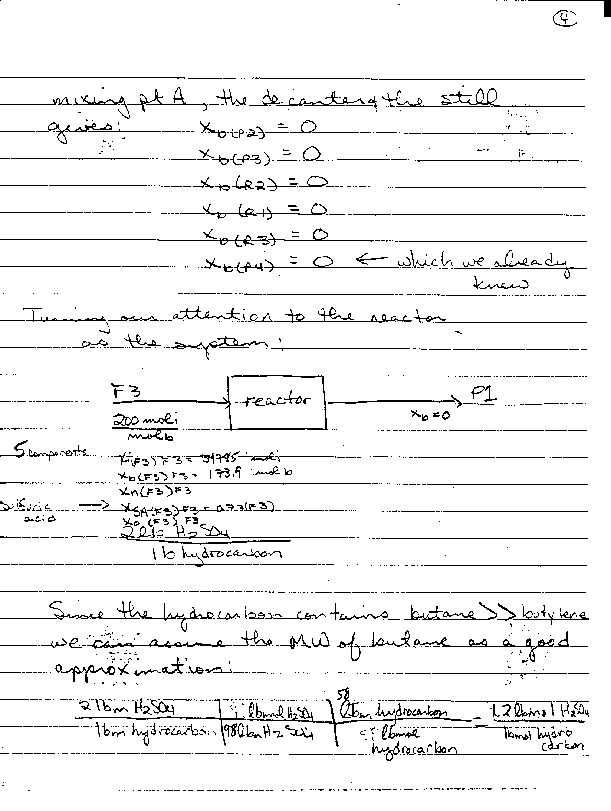 4
mixing pt A, the decanter & the still
gives:
x_b(P2) = 0
x_b(P3) = 0
x_b(R2) = 0
x_b(R1) = 0
x_b(R3) = 0
x_b(P4) = 0 ← which we already
knew
Turning our attention to the reactor
as the system:
F3 reactor P1
200 mol i
mol b
x_b=0
5 components
x_i(F3) F3 = mol i
x_b(F3) F3 = 173.9 mol b
x_n(F3) F3
acid → x_SA(F3) F3 = (F3)
(F3) F3
2 lb H2SO4
1 lb hydrocarbon
Since the hydrocarbon contains butane >> butylene
we can assume the MW of butane as a good
approximation:
2 lbm H2SO4 lbmol H2SO4 58 lbm hydrocarbon = 1.2 lbmol H2SO4
1 lbm hydrocarbon 98 lbm H2SO4 lbmol hydrocarbon lbmol hydrocarbon